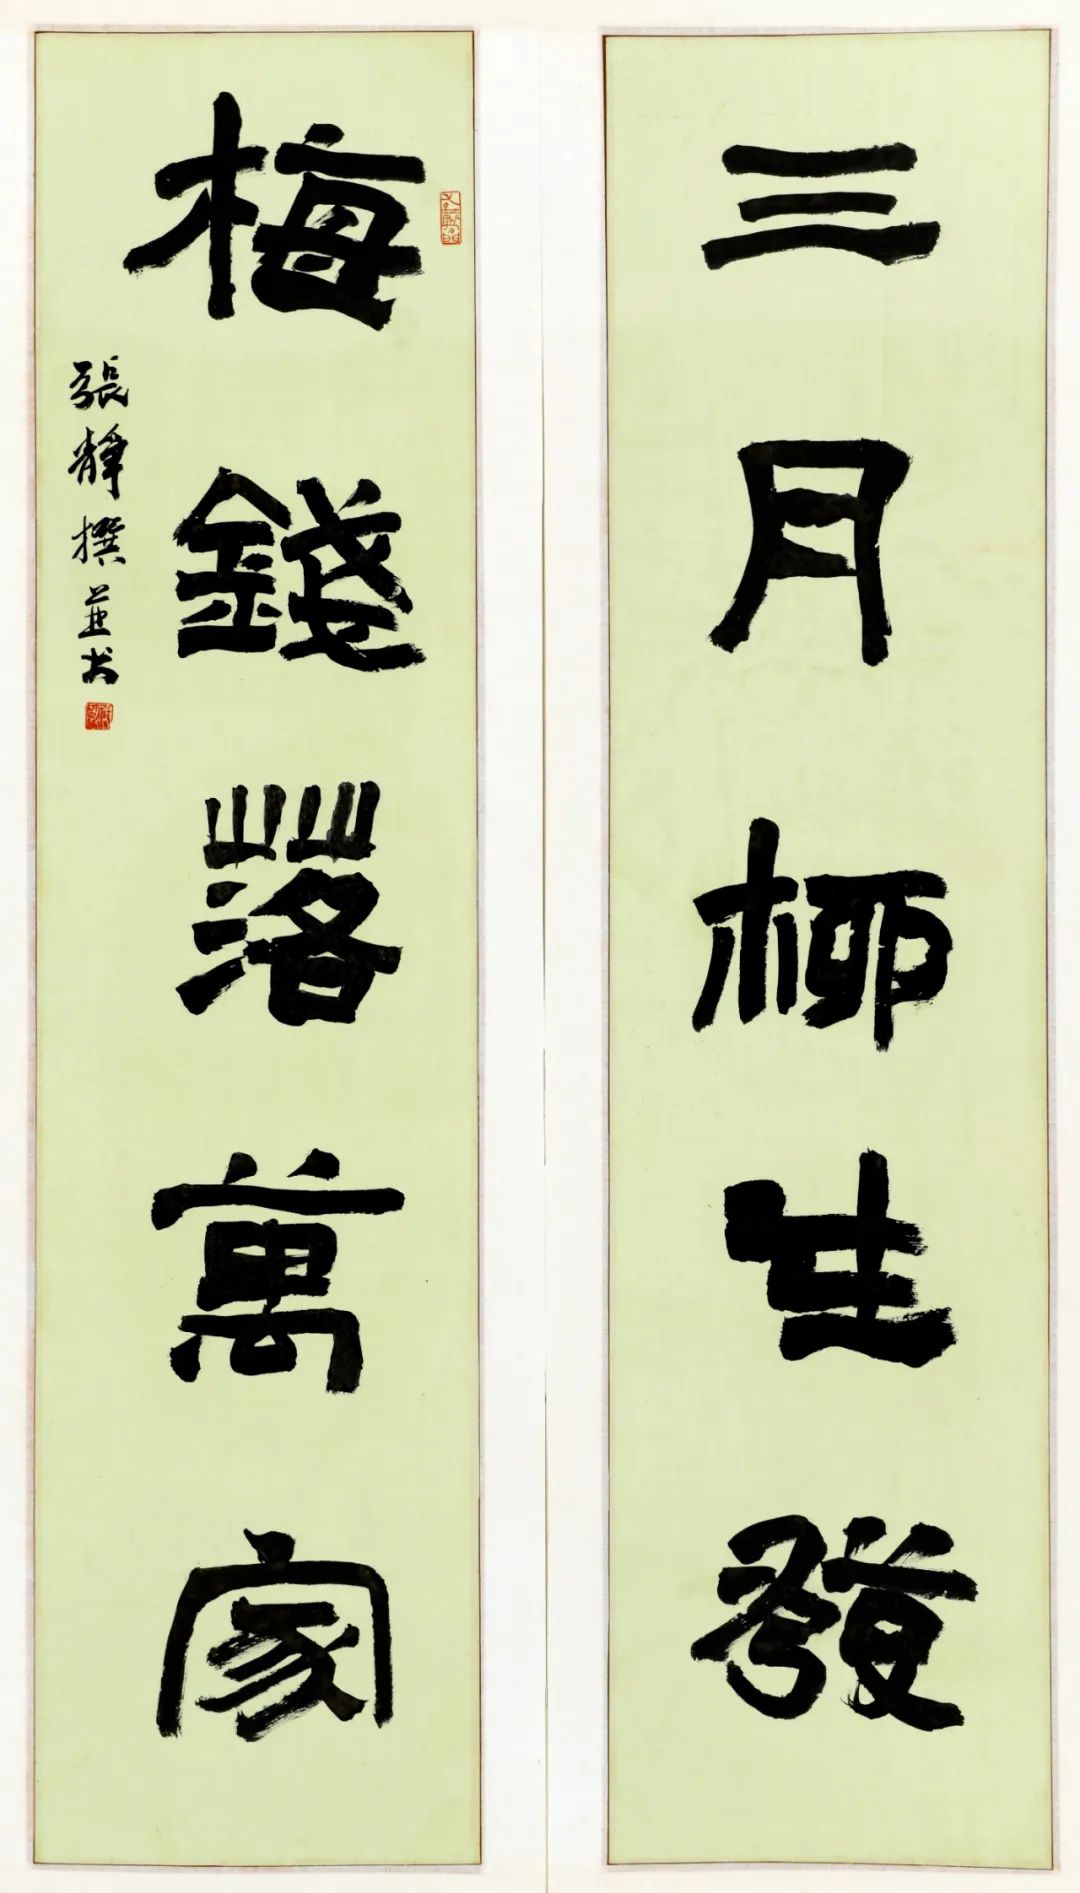 三月柳生發
梅錢落萬家
張靜撰並书